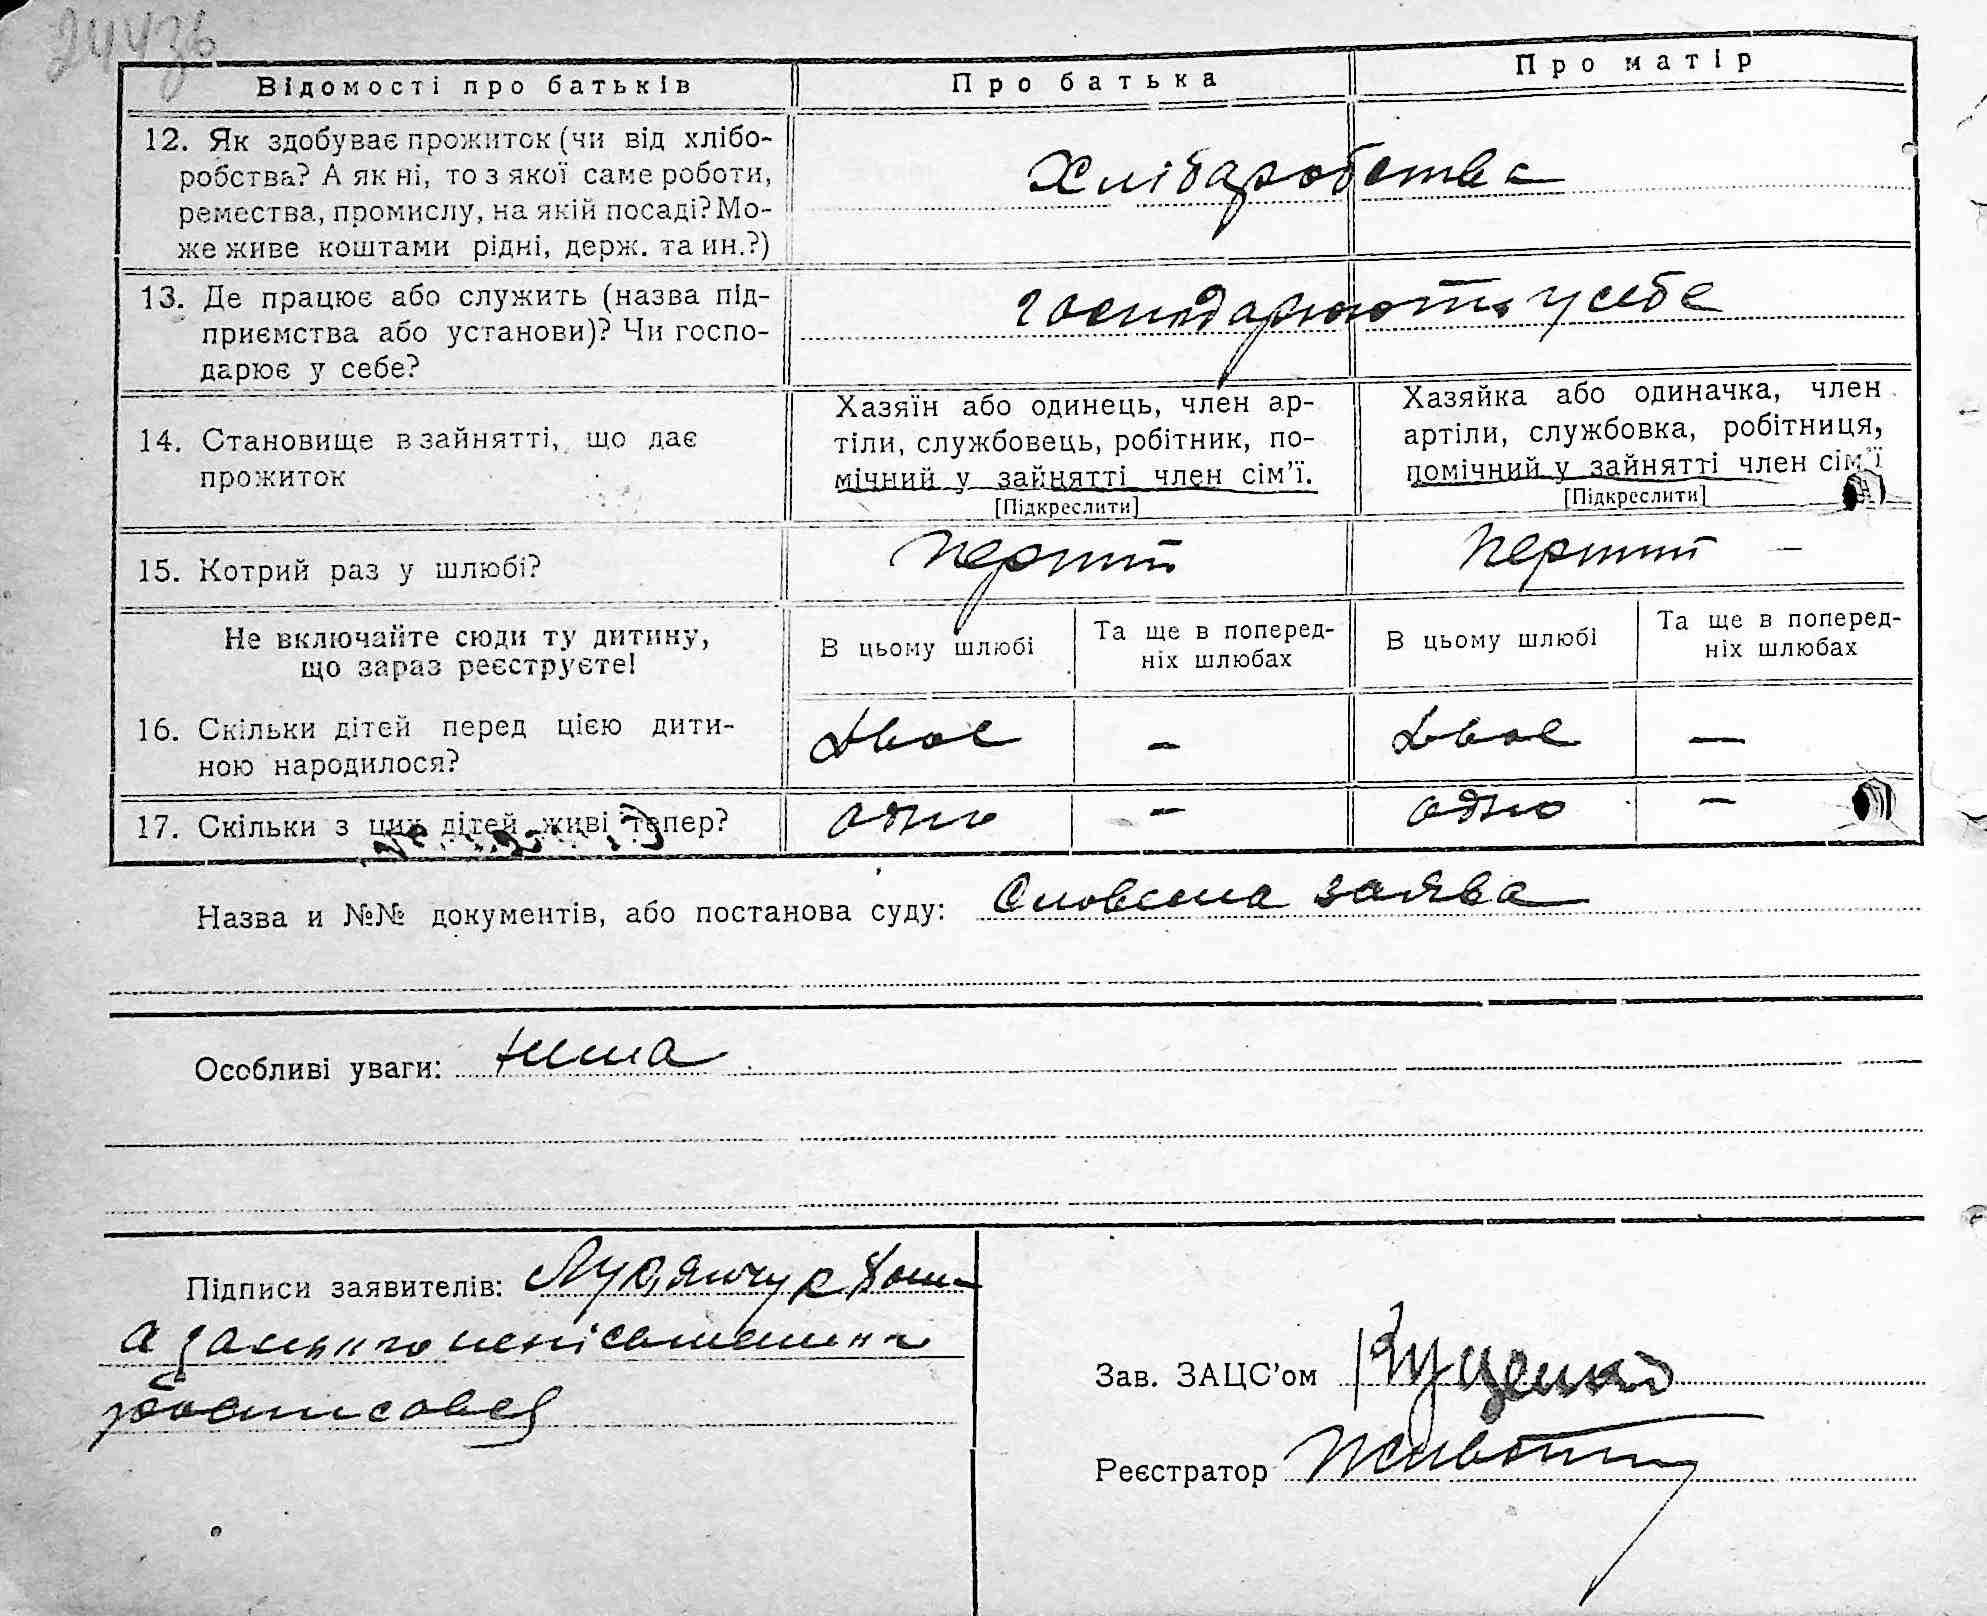 24436
Відомості про батьків
Про батька
Про матір
12. Як здобуває прожиток (чи від хлібо-
робства? А як ні, то з якої саме роботи,
ремества, промислу, на якій посаді? Мо-
же живе коштами рідні, держ. та ин.?)
Хлібаробства
13. Де працює або служить (назва під-
приємства або установи)? Чи госпо-
дарює у себе?
господарюють у себе
14. Становище в зайнятті, що дає
прожиток
Хазяїн або одинець, член ар-
тіли, службовець, робітник, по-
мічний у зайнятті член сім’ї.
[Підкреслити]
Хазяйка або одиначка, член
артіли, службовка, робітниця,
помічний у зайнятті член сім’ї
[Підкреслити]
15. Котрий раз у шлюбі?
перший
перший –
Не включайте сюди ту дитину,
що зараз реєструєте!
В цьому шлюбі
Та ще в поперед-
ніх шлюбах
В цьому шлюбі
Та ще в поперед-
ніх шлюбах
16. Скільки дітей перед цією дити-
ною народилося?
двоє
–
двоє
—
17. Скільки з цих дітей живі тепер?
одно
–
одно
–
Назва и №№ документів, або постанова суду: Словесна заява
Особливі уваги: нема
Підписи заявителів: Лукянчук
а за нього неписьменного
росписовся
Зав. ЗАЦС’ом Куценко
Реєстратор